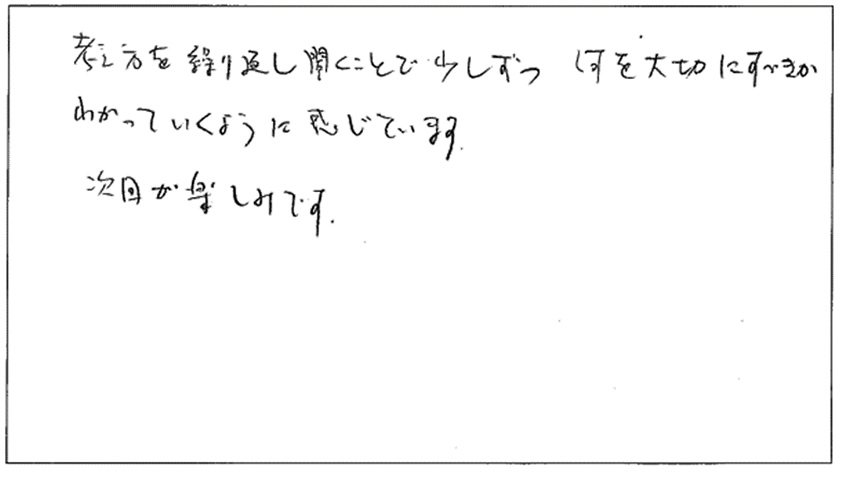 考え方を繰り返し聞くことで少しずつ 何を大切にすべきか
わかっていくように感じています.
次回が楽しみです.